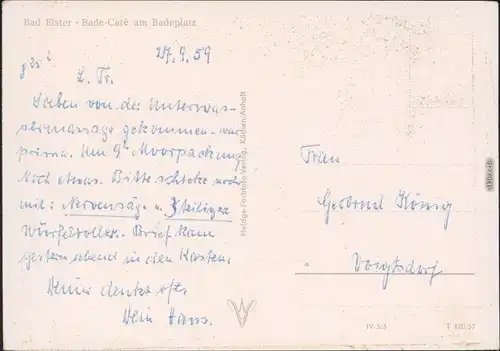 Bad Elster - Bade-Café am Badeplatz
27.9.59
L. Tr.
Soeben von der Unterwas-
sermassage gekommen - war
prima. Um 9h Moorpackung
Noch etwas. Bitte schicke noch
mit: Nervensäge u. teiliger
Brief kam
gestern abend in den Kasten.
Deiner denkt oft
Dein Hans.
Heldge-Farbfoto Verlag, Köthen/Anhalt
Frau
König
Voigtsdorf
IV 5/3
T 120 57